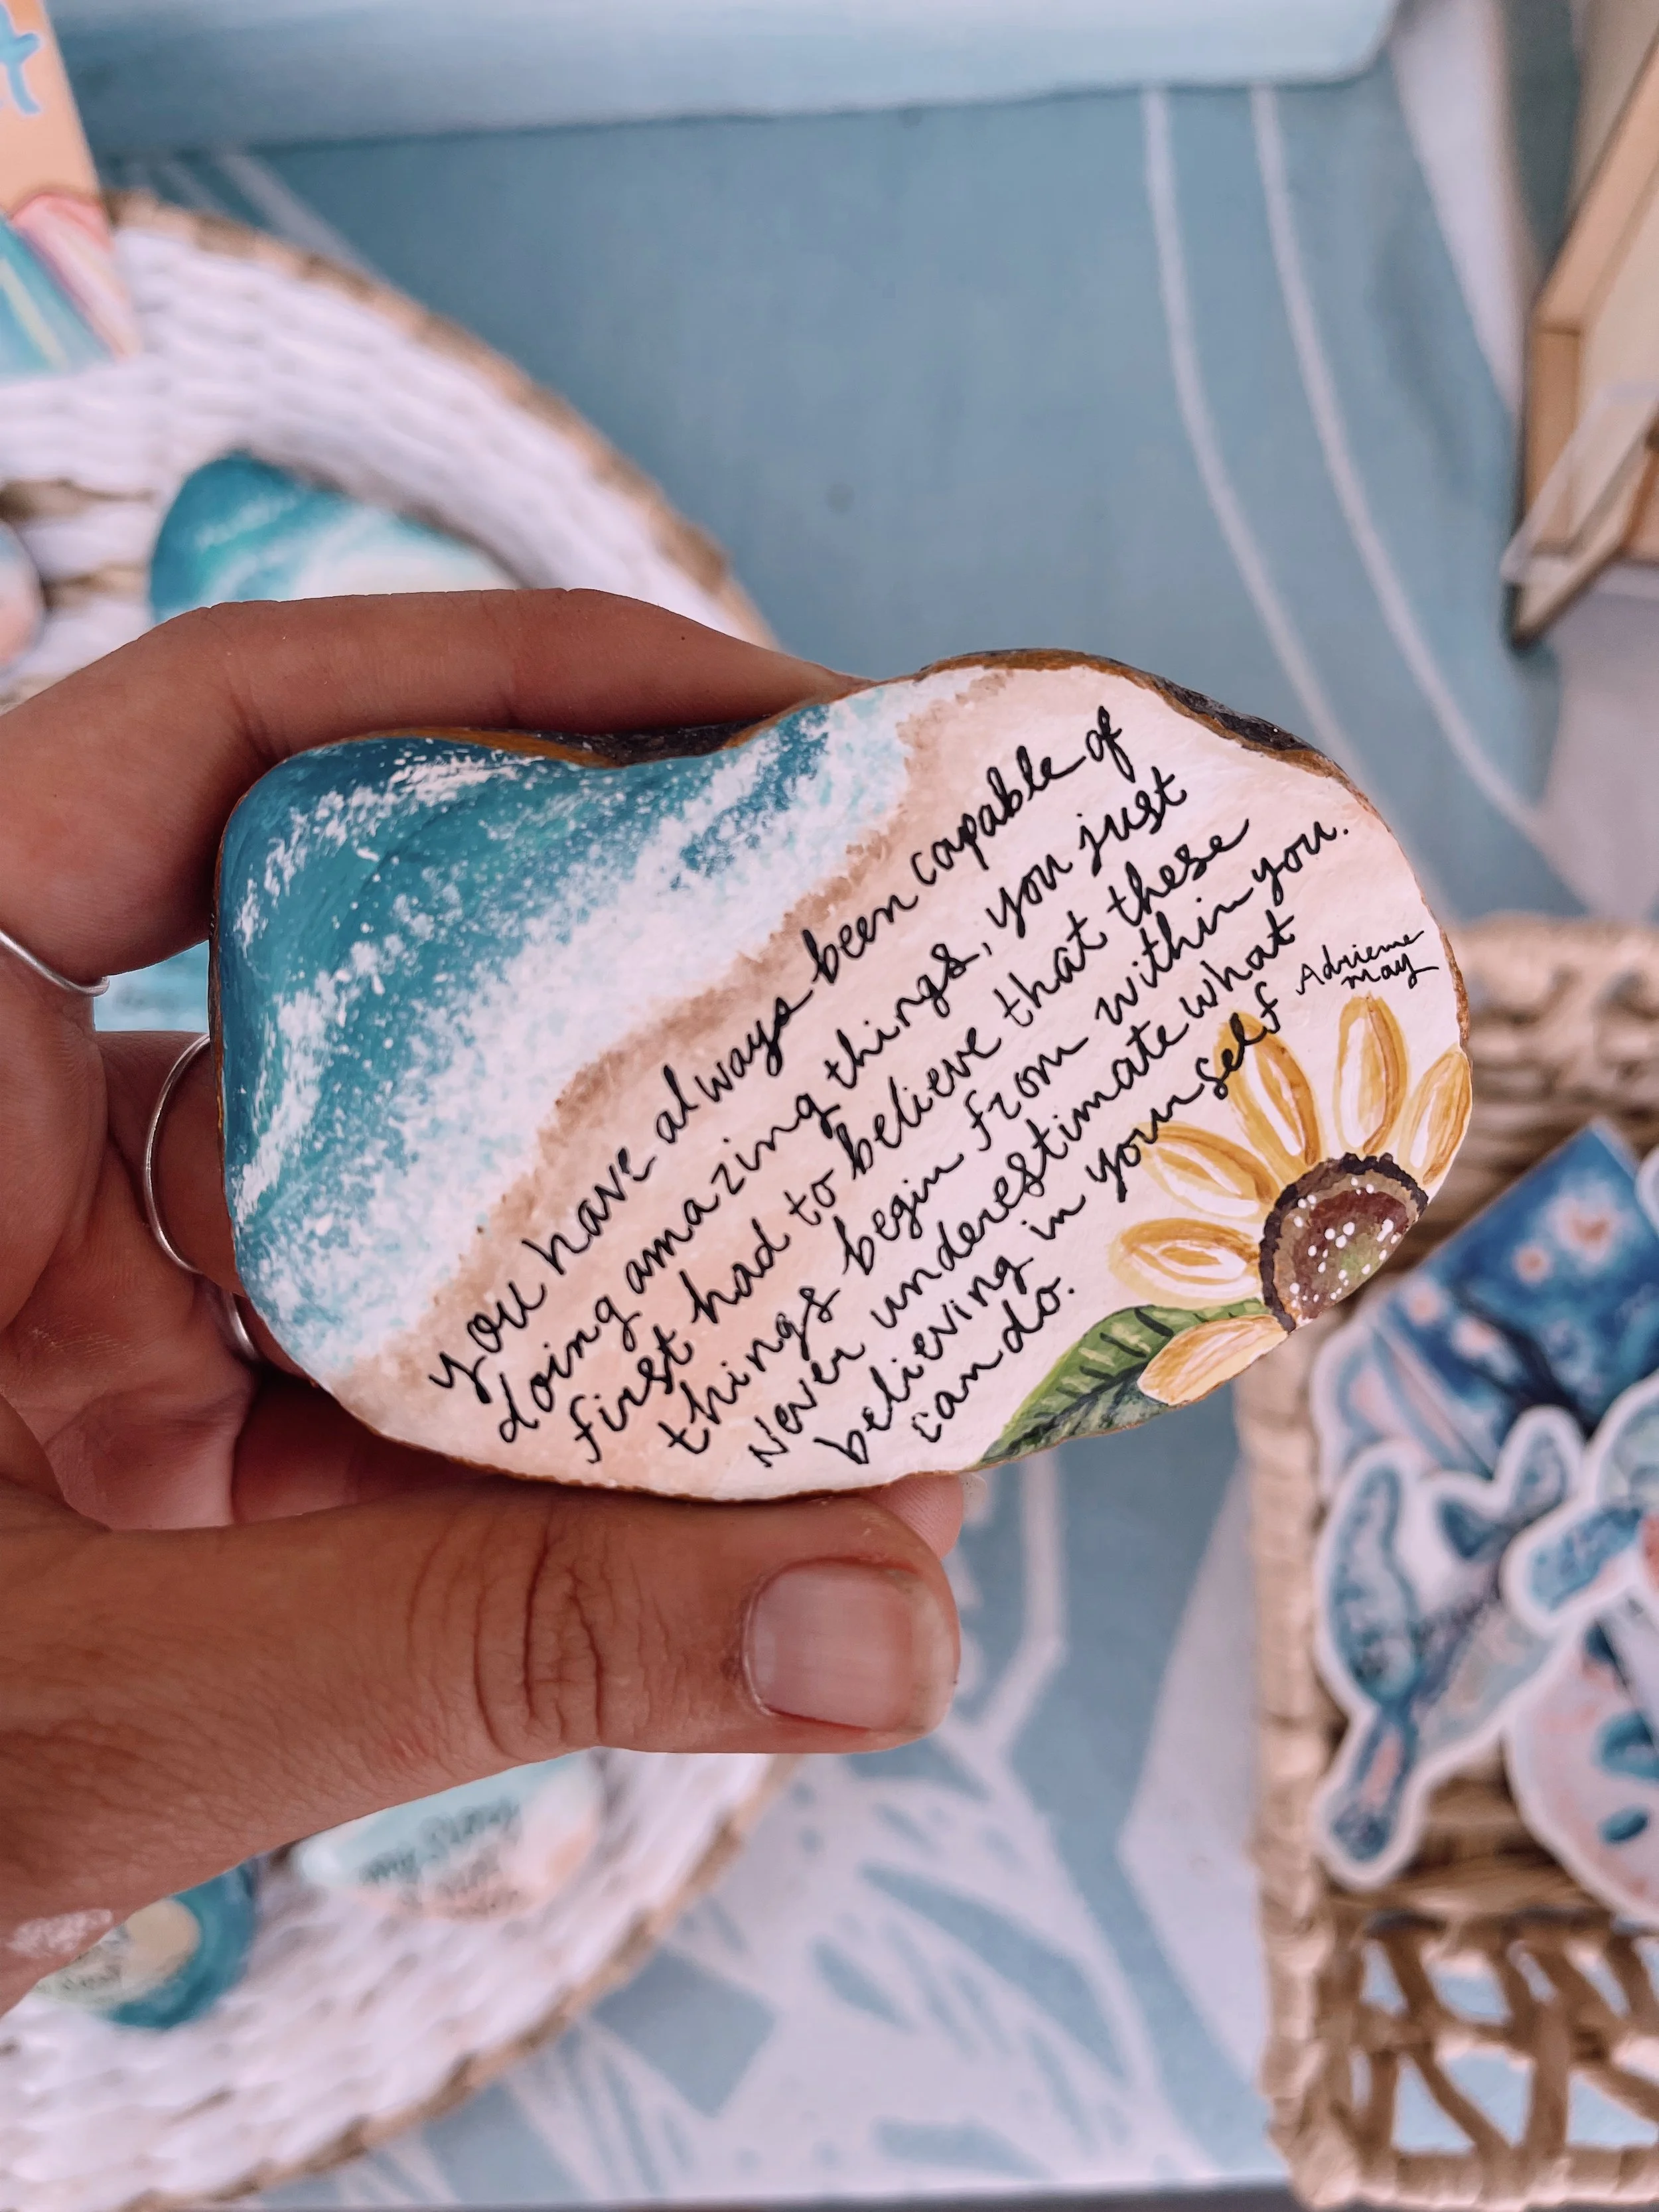 you have always been capable of
doing amazing things, you just
first had to believe that these
things begin from within you.
Never underestimate what
believing in yourself
can do.
Adrienne
May